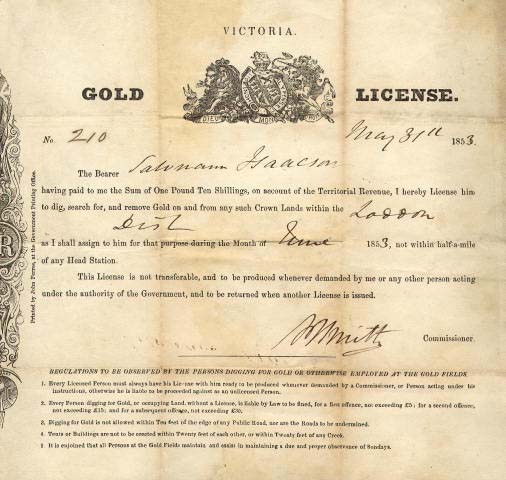 VICTORIA.
GOLD LICENSE.
DIEU ET MON DROIT
No. 210 May 31st 1853.
The Bearer Isaacson
having paid to me the Sum of One Pound Ten Shillings, on account of the Territorial Revenue, I hereby License him
to dig, search for, and remove Gold on and from any such Crown Lands within the Loddon
Dist
as I shall assign to him for that purpose during the Month of June 1853, not within half-a-mile
of any Head Station.
This License is not transferable, and to be produced whenever demanded by me or any other person acting
under the authority of the Government, and to be returned when another License is issued.
Commissioner.
REGULATIONS TO BE OBSERVED BY THE PERSONS DIGGING FOR GOLD OR OTHERWISE EMPLOYED AT THE GOLD FIELDS
1. Every Licensed Person must always have his License with him ready to be produced whenever demanded by a Commissioner, or Person acting under his
instructions, otherwise he is liable to be proceeded against as an unlicensed Person.
2. Every Person digging for Gold, or occupying Land, without a License, is liable by Law to be fined, for a first offence, not exceeding £5; for a second offence,
not exceeding £15; and for a subsequent offence, not exceeding £30.
3. Digging for Gold is not allowed within Ten feet of the edge of any Public Road, nor are the Roads to be undermined.
4. Tents or Buildings are not to be erected within Twenty feet of each other, or within Twenty feet of any Creek.
5. It is enjoined that all Persons at the Gold Fields maintain and assist in maintaining a due and proper observance of Sundays.
Printed by John Ferres, at the Government Printing Office.
R